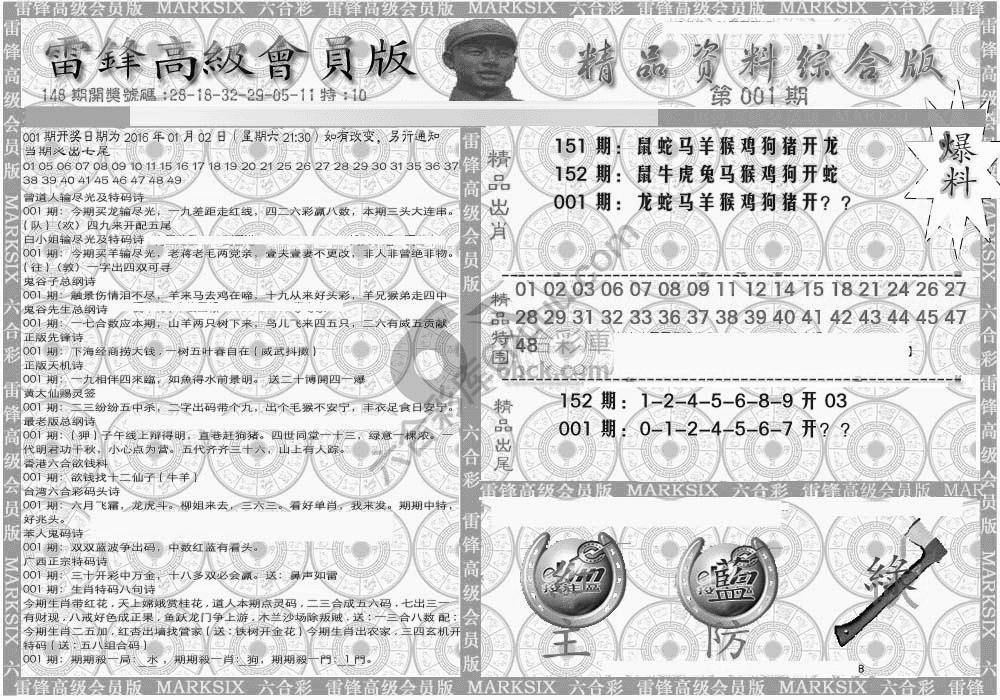 雷锋高级会员版 MARKSIX 六合彩 雷锋高级会员版 MARKSIX 六合彩 雷锋高级会员版 MARKSIX 六合彩 雷锋
雷鋒高級會員版
精品资料综合版
148期開獎號碼:28-18-32-29-05-11特:10
第001期
001期开奖日期为2016年01月02日（星期六21:30）如有改变，另行通知
当期必出七尾
01 05 06 07 08 09 10 11 15 16 17 18 19 20 21 25 26 27 28 29 30 31 35 36 37
38 39 40 41 45 46 47 48 49
曾道人输尽光及特码诗
001期：今期买龙输尽光，一九差距走红线，四二六彩赢八数，本期三头大连串。
{队}（欢）四九来开配五尾
白小姐输尽光及特码诗
001期：今期买羊输尽光，老蒋老毛两党亲，壹夫壹妻不更改，非人非曾绝非物。
{往}（敦）一字出四双可寻
鬼谷子总纲诗
001期：融景伤情泪不尽，羊来马去鸡在啼，十九从来好头彩，羊兄猴弟走四中
鬼谷先生总纲诗
001期：一七合数应本期，山羊两只树下来，鸟儿飞来四五只，三六有威五贡献
正版先锋诗
001期：下海经商捞大钱，一树五叶春自在{威武抖擞}
正版天机诗
001期：一九相伴四來臨，如魚得水前景明。送二十博開四一爆
黄大仙赐灵签
001期：二三纷纷五中杀，二字出码带个九，出个毛猴不安宁，丰衣足食日安宁。
最老版总纲诗
001期：{狎}子午线上辩得明，直巷赶狗猪。四世同堂一十三，绿意一棵浓。一
代明君功千秋，小心点为营。五代齐齐三十六，山上有人踪。
香港六合欲钱料
001期：欲钱找十二仙子{牛羊}
台湾六合彩码头诗
001期：六月飞霜，龙虎斗。柳姐来去，三六三。看好单肖，我来发。期期中特，
好兆头。
本人鬼码诗
001期：双双蓝波争出码，中数红蓝有看头。
广西正宗特码诗
001期：三十开彩中万金，十八多双必会赢。送：鼻声如雷
001期：生肖特码八句诗
今期生肖带红花，天上嫦娥赏桂花，道人本期点灵码，二三合成五六码，七出三一
有财现，八戒好色成正果，鱼跃龙门争上游，木兰沙场除叛贼．送：一三合八数 配：
今期生肖二五加，红杏出墙找管家{送：铁树开金花}今期生肖出农家，三四玄机开
特码{送：五八组合码}
001期：期期殺一局：水，期期殺一肖：狗，期期殺一門：1門。
精品出肖
151期：鼠蛇马羊猴鸡狗猪开龙
152期：鼠牛虎兔马猴鸡狗开蛇
001期：龙蛇马羊猴鸡狗猪开？？
爆料
精品特围
01 02 03 06 07 08 09 11 12 14 15 18 21 24 26 27
28 29 31 32 33 36 37 38 39 40 41 42 43 44 45 47
48
精品出尾
152期：1-2-4-5-6-8-9开03
001期：0-1-2-4-5-6-7开？？
雷锋高级会员版 MARKSIX 六合彩 雷锋高级会员版 MAR
主
防
綠
8
雷锋高级会员版 MARKSIX 六合彩 雷锋高级会员版 MARKSIX 六合彩 雷锋高级会员版 MARKSIX 六合彩 雷锋